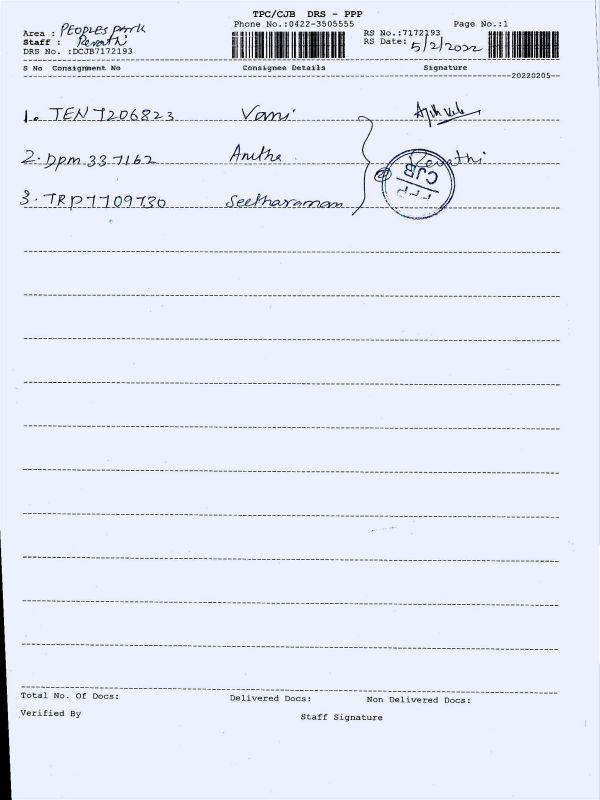 TPC/CJB DRS - PPP
Phone No.:0422-3505555 Page No.:1
Area : PEOPLES PARK
Staff : Revathi
DRS No. :DCJB7172193
RS No.:7172193
RS Date: 5/2/2022
S No Consignment No Consignee Details Signature
20220205
1. TEN 7206823 Vani
2. Dpm 337162 Anitha Revathi
3. TRP 7709730 Seetharaman
CJB
PPP
Total No. Of Docs: Delivered Docs: Non Delivered Docs:
Verified By Staff Signature